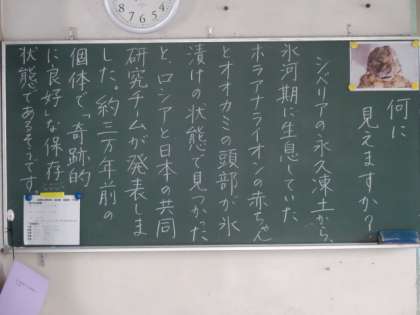 何に
見えますか?
シベリアの永久凍土から、
氷河期に生息していた
ホラアナライオンの赤ちゃん
とオオカミの頭部が氷
漬けの状態で見つかった
と、ロシアと日本の共同
研究チームが発表しま
した。約三万年前の
個体で「奇跡的
に良好」な保存
状態であるそうです。